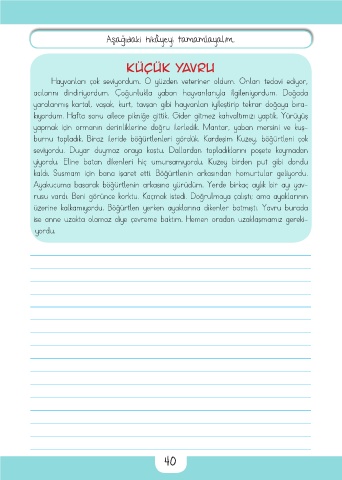 Aşağıdaki hikâyeyi tamamlayalım.
KÜÇÜK YAVRU
Hayvanları çok seviyordum. O yüzden veteriner oldum. Onları tedavi ediyor,
acılarını dindiriyordum. Çoğunlukla yaban hayvanlarıyla ilgileniyordum. Doğada
yaralanmış kartal, vaşak, kurt, tavşan gibi hayvanları iyileştirip tekrar doğaya bıra-
kıyordum. Hafta sonu ailece pikniğe gittik. Gider gitmez kahvaltımızı yaptık. Yürüyüş
yapmak için ormanın derinliklerine doğru ilerledik. Mantar, yaban mersini ve kuş-
burnu topladık. Biraz ileride böğürtlenleri gördük. Kardeşim Kuzey, böğürtleni çok
seviyordu. Duyar duymaz oraya koştu. Dallardan topladıklarını poşete koymadan
yiyordu. Eline batan dikenleri hiç umursamıyordu. Kuzey birden put gibi dondu
kaldı. Susmam için bana işaret etti. Böğürtlenin arkasından homurtular geliyordu.
Ayakucuma basarak böğürtlenin arkasına yürüdüm. Yerde birkaç aylık bir ayı yav-
rusu vardı. Beni görünce korktu. Kaçmak istedi. Doğrulmaya çalıştı; ama ayaklarının
üzerine kalkamıyordu. Böğürtlen yerken ayaklarına dikenler batmıştı. Yavru burada
ise anne uzakta olamaz diye çevreme baktım. Hemen oradan uzaklaşmamız gereki-
yordu.
40